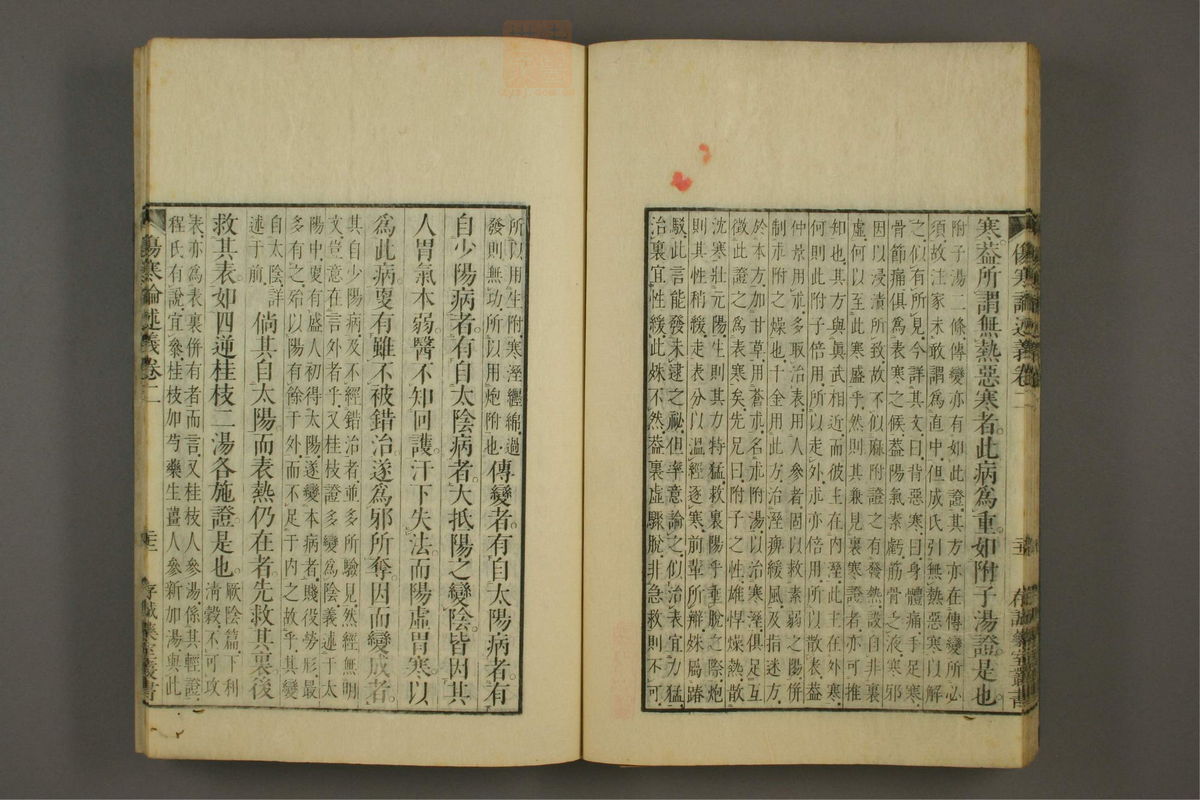 傷寒論述義卷二
存誠藥室叢書
寒。葢所謂無熱惡寒者。此病爲重。如附子湯證是也。
附子湯二條傳變亦有如此證.其方亦在傳變所必
須.故注家未敢謂爲直中.但成氏引無熱惡寒以解
之.似有所見.今詳其文.曰背惡寒.曰身體痛手足寒.
骨節痛.俱爲表寒之候.葢陽氣素虧.筋骨之液.寒邪
因以浸漬所致.故不似麻附證之有發熱.設自非裏
虛.何以至此寒盛乎.然則其兼見裏寒證者.亦可推
知也.其方與眞武相近.而彼主在內溼.此主在外寒.
何則此附子倍用.所以走外.朮亦倍用.所以散表.葢
仲景用朮.多取治表.用人參者.固以救素弱之陽.併
制朮附之燥也.十全用此方.治溼痹緩風.及指迷方.
於本方加甘草.用蒼朮.名朮附湯.以治寒溼.俱足互
徵此證之爲表寒矣.先兄曰.附子之性.雄悍燥熱.散
沈寒.壯元陽.生則其力特猛.救裏陽乎垂脫之際.炮
則其性稍緩.走表分以溫經逐寒.前輩所辯.殊屬踳
駁.此言能發未逮之祕.但率意論之.似治表宜力猛.
治裏宜性緩.此殊不然.葢裏虛驟脫.非急救則不可.
所以用生附.寒溼纏綿.過
發則無功.所以用炮附也.
傳變者。有自太陽病者。有
自少陽病者。有自太陰病者。大抵陽之變陰。皆因其
人胃氣本弱。醫不知回護。汗下失法。而陽虛胃寒。以
爲此病。更有雖不被錯治。遂爲邪所奪。因而變成者。
其自少陽病及不經錯治者.並多所驗見.然經無明
文.豈意在言外者乎.又桂枝證多變爲陰.義述于太
陽中.更有盛人初得太陽.遂變本病者.賤役勞形.最
多有之.殆以陽有餘于外.而不足于內之故乎.其變
自太陰.詳
述于前.
倘其自太陽。而表熱仍在者。先救其裏。後
救其表。如四逆桂枝二湯各施證是也。
厥陰篇.下利
淸穀.不可攻
表.亦爲表裏併有者而言.又桂枝人參湯.係其輕證.
程氏有說.宜參.桂枝加芍藥生薑人參新加湯與此
傷寒論述義卷二
存誠藥室叢書